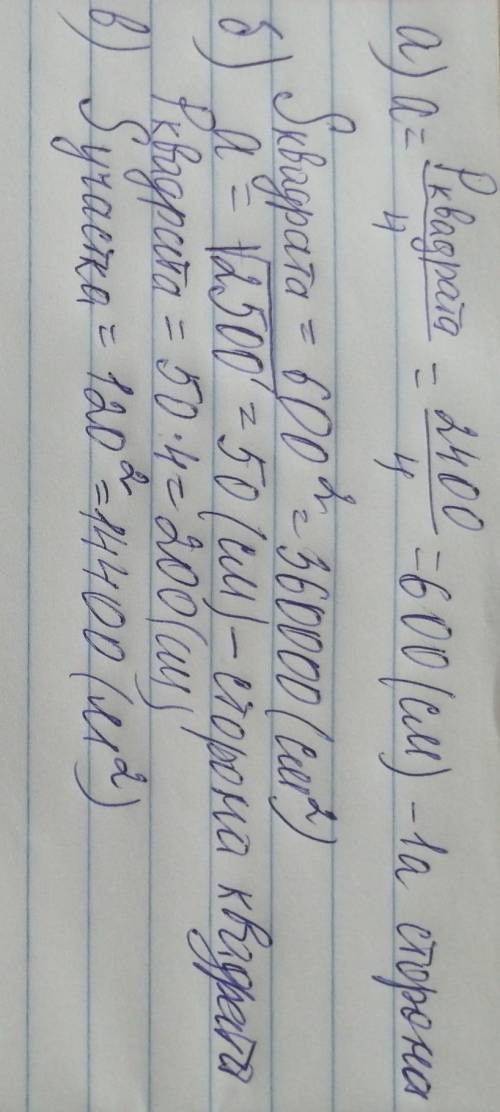 а) a = Pквадрата/4 = 2400/4 = 600 (см) - 1а сторона
Sквадрата = 600² = 360000 (см²)
б) a = √2500 = 50 (см) - сторона квадрата
Pквадрата = 50·4 = 200 (см)
в) Sучастка = 120² = 14400 (м²)